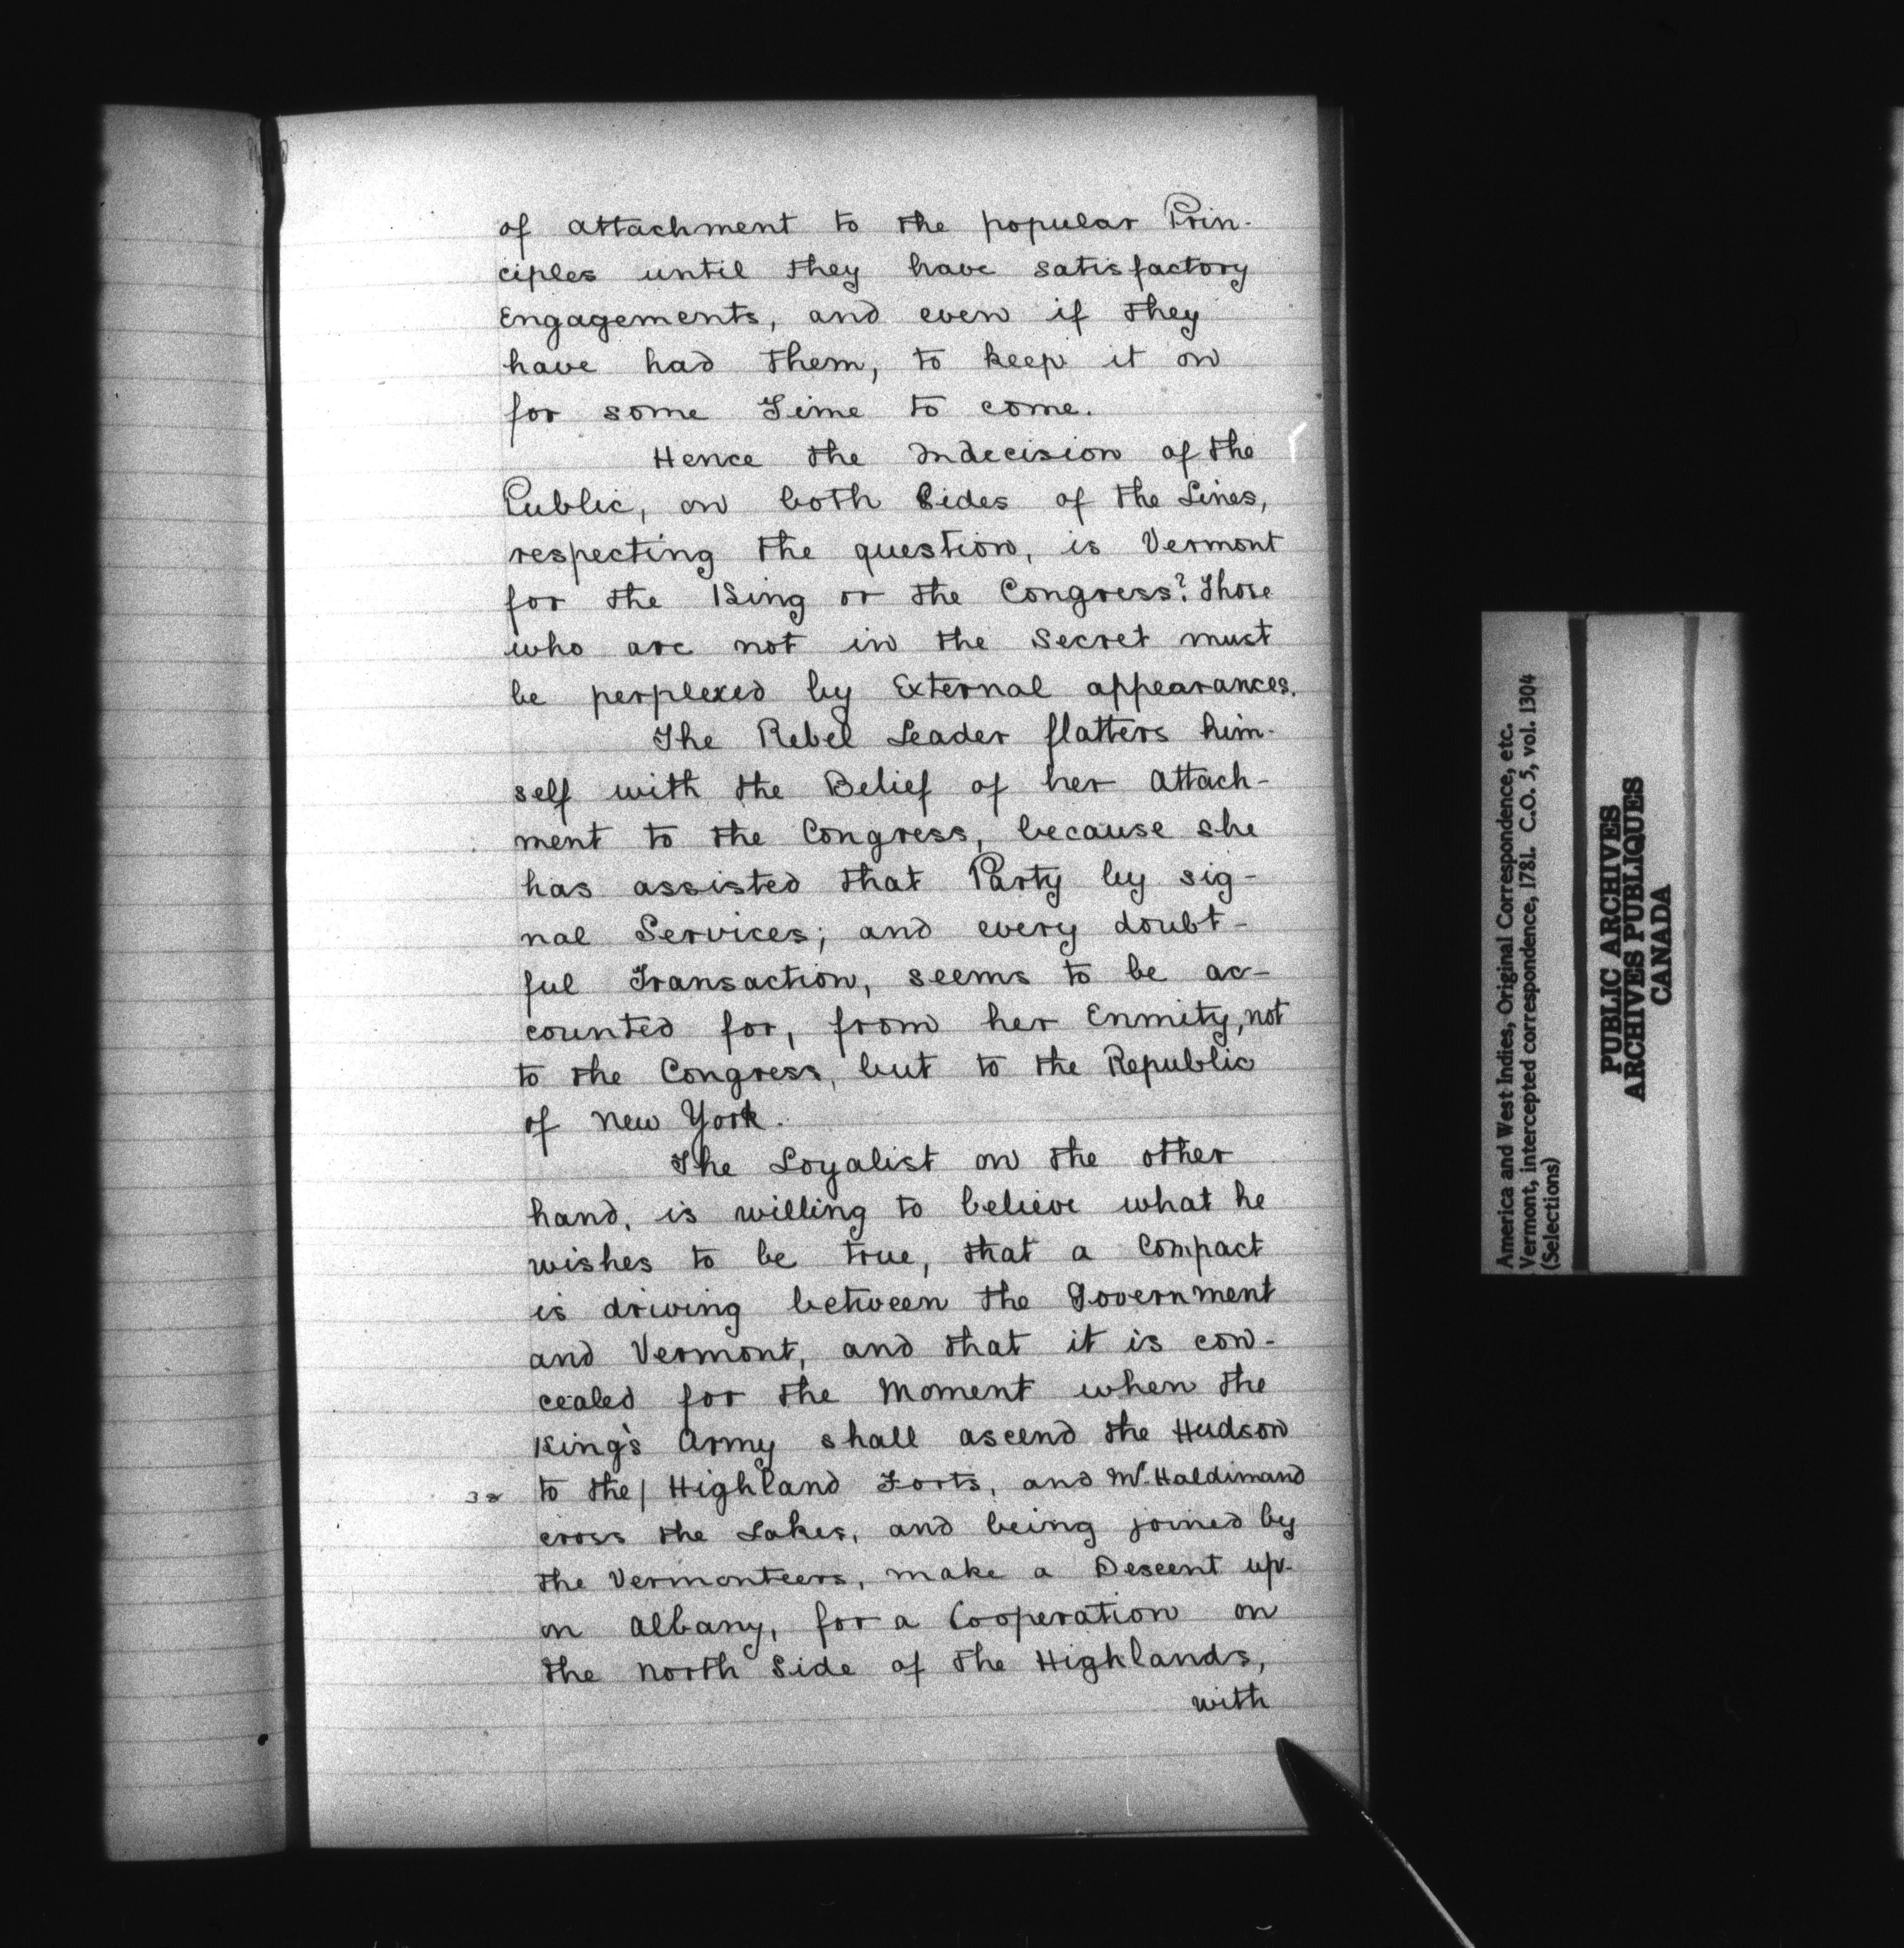 of attachment to the popular Prin-
ciples until they have satisfactory
Engagements, and even if they
have had them, to keep it on
for some Time to come.
Hence the Indecision of the
Public, on both Sides of the Lines,
respecting the question, is Vermont
for the King or the Congress? Those
who are not in the Secret must
be perplexed by External appearances.
The Rebel Leader flatters him-
self with the Belief of her Attach-
ment to the Congress, because she
has assisted that Party by sig-
nal Services; and every doubt-
ful Transaction, seems to be ac-
counted for, from her Enmity, not
to the Congress, but to the Republic
of New York.
The Loyalist on the other
hand, is willing to believe what he
wishes to be true, that a Compact
is driving between the Government
and Vermont, and that it is con-
cealed for the Moment when the
King's Army shall ascend the Hudson
38 to the / Highland Forts, and Mr. Haldimand
cross the Lakes, and being joined by
the Vermonteers, make a Descent up-
on Albany, for a Cooperation on
the North Side of the Highlands,
with
America and West Indies, Original Correspondence, etc.
Vermont, intercepted correspondence, 1781. C.O. 5, vol. 1304
(Selections)
PUBLIC ARCHIVES
ARCHIVES PUBLIQUES
CANADA